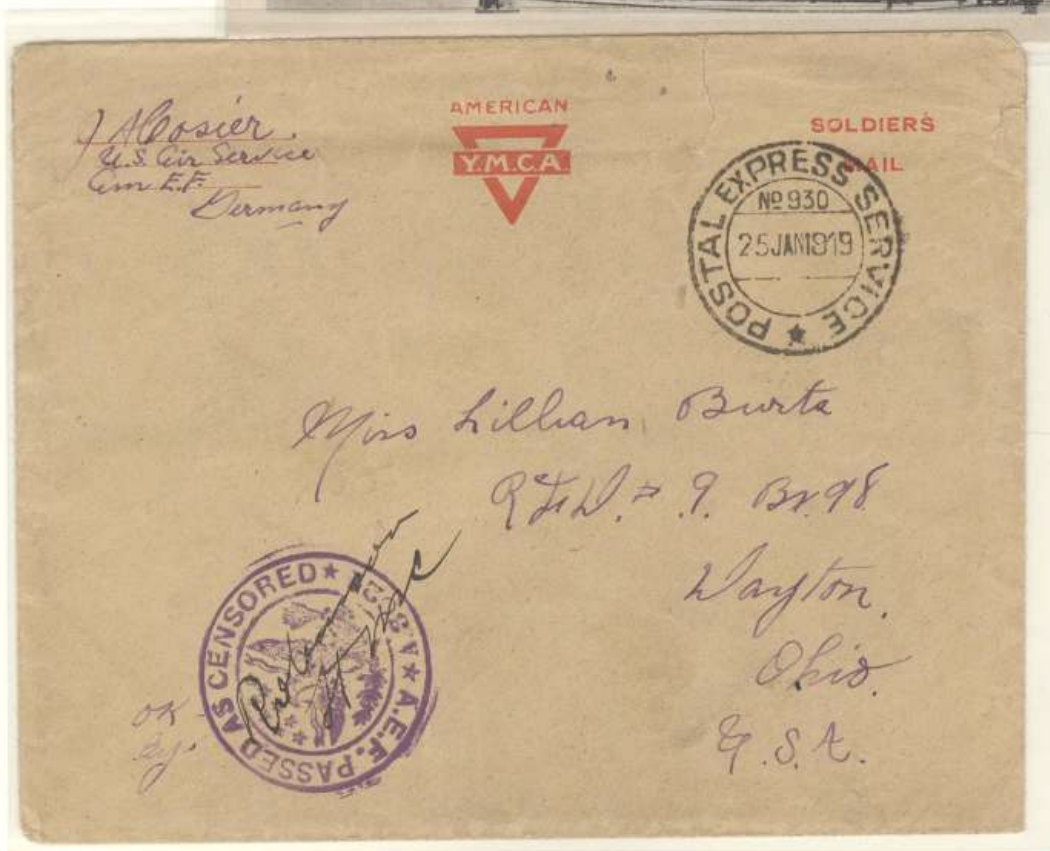 J A Cosier.
U.S. Air Service
Am E.F.
Germany
AMERICAN
Y.M.C.A
SOLDIERS
MAIL
POSTAL EXPRESS SERVICE ★
Nº 930
25 JAN 1919
Miss Lillian Burta
R.F.D. 9. Bx 98
Dayton,
Ohio.
U.S.A.
A.E.F. PASSED AS CENSORED ★ A.S. ★
OK